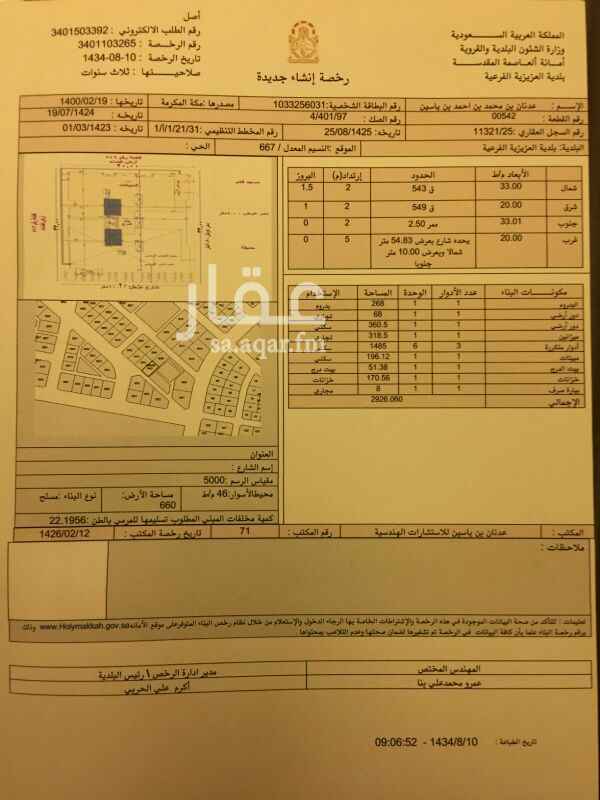 أصل
المملكة العربية السعودية
وزارة الشئون البلدية والقروية
أمانة العاصمة المقدسة
بلدية العزيزية الفرعية
رخصة إنشاء جديدة
رقم الطلب الالكتروني : 3401503392
رقم الرخصة : 3401103265
تاريخ الرخصة : 1434-08-10
صلاحيتها : ثلاث سنوات
الإسم : عدنان بن محمد بن احمد بن ياسين
رقم البطاقة الشخصية: 1033256031
مصدرها :مكة المكرمة
تاريخها : 1400/02/19
رقم القطعة : 00542
رقم الصك : 4/401/97
تاريخه : 19/07/1424
رقم السجل العقاري : 11321/25
تاريخه : 25/08/1425
رقم المخطط التنظيمي :1/21/31/أ/1
تاريخه: 01/03/1423
البلدية: بلدية العزيزية الفرعية
الموقع :النسيم المعدل / 667
الحي :
الأبعاد م/ط الحدود إرتداد(م) البروز
شمال 33.00 ق 543 2 1.5
شرق 20.00 ق 549 2 1
جنوب 33.01 ممر 2.50 2 0
غرب 20.00 يحده شارع بعرض 54.83 متر شمالا وبعرض 10.00 متر جنوبا 5 0
مكونات البناء عدد الأدوار الوحدة المساحة الإستخدام
البدروم 1 1 268 بدروم
دور أرضي 1 1 68
دور أرضي 1 1 360.5 سكني
ميزانين 1 1 318.5
أدوار متكررة 3 6 1485 سكني
مبيتات 1 1 196.12 سكني
بيت الدرج 1 1 51.38 بيت درج
خزانات 1 1 170.56 خزانات
بيارة صرف 1 1 8 مجاري
الإجمالي 2926.060
عقار
sa.aqar.fm
العنوان
إسم الشارع :
مقياس الرسم :5000
محيط الأسوار: 46 م/ط
مساحة الأرض: 660
نوع البناء :مسلح
كمية مخلفات المبنى المطلوب تسليمها للمرمي بالطن :22.1956
المكتب : عدنان بن ياسين للاستشارات الهندسية
رقم المكتب : 71
تاريخ رخصة المكتب : 1426/02/12
ملاحظات :
تعليمات : للتأكد من صحة البيانات الموجودة في هذه الرخصة والإشتراطات الخاصة بها الرجاء الدخول والإستعلام من خلال نظام رخص البناء المتوفر على موقع الأمانة www.Holymakkah.gov.sa وذلك
برقم رخصة البناء علما بأن كافة البيانات في الرخصة تم تشفيرها لضمان صحتها وعدم التلاعب بمحتواها
المهندس المختص
عمرو محمدعلي بنا
مدير ادارة الرخص \ رئيس البلدية
أكرم علي الحربي
تاريخ الطباعة : 1434/8/10 - 09:06:52